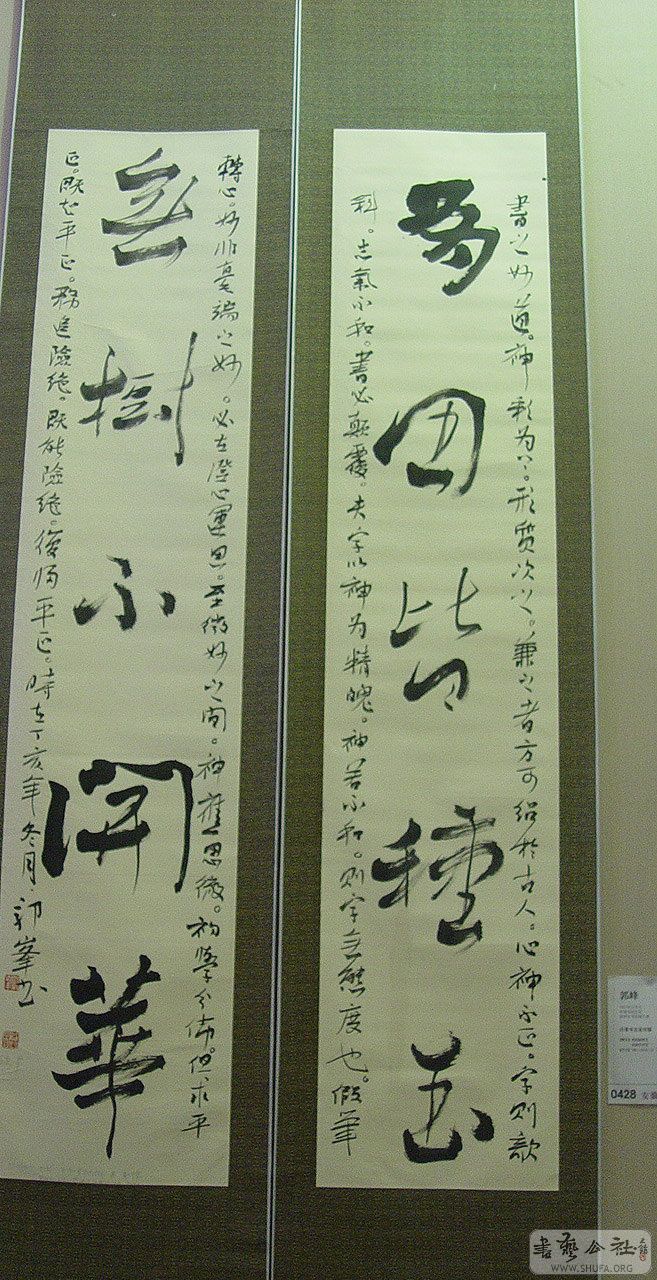 書之妙道。神彩为上。形質次之。兼之者方可紹於古人。心神不正。字则欹
有田皆種玉
斜。志氣不和。書必顛覆。夫字以神为精魄。神若不和。则字無態度也。假筆
轉心。妙非毫端之妙。必在澄心運思。至微妙之间。神應思徹。初學分佈。但求平
無樹不開華
正。既知平正。務追險絕。既能險絕。復歸平正。時在丁亥年冬月郭峯书
郭峰
0428
書藝公社
WWW.SHUFA.ORG